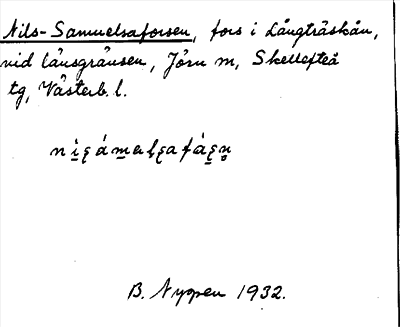 Nils-Samuelsaforsen, fors i Långträskån,
vid länsgränsen, Jörn sn, Skellefteå
tg, Västerb. l.
B. Nyman 1932.